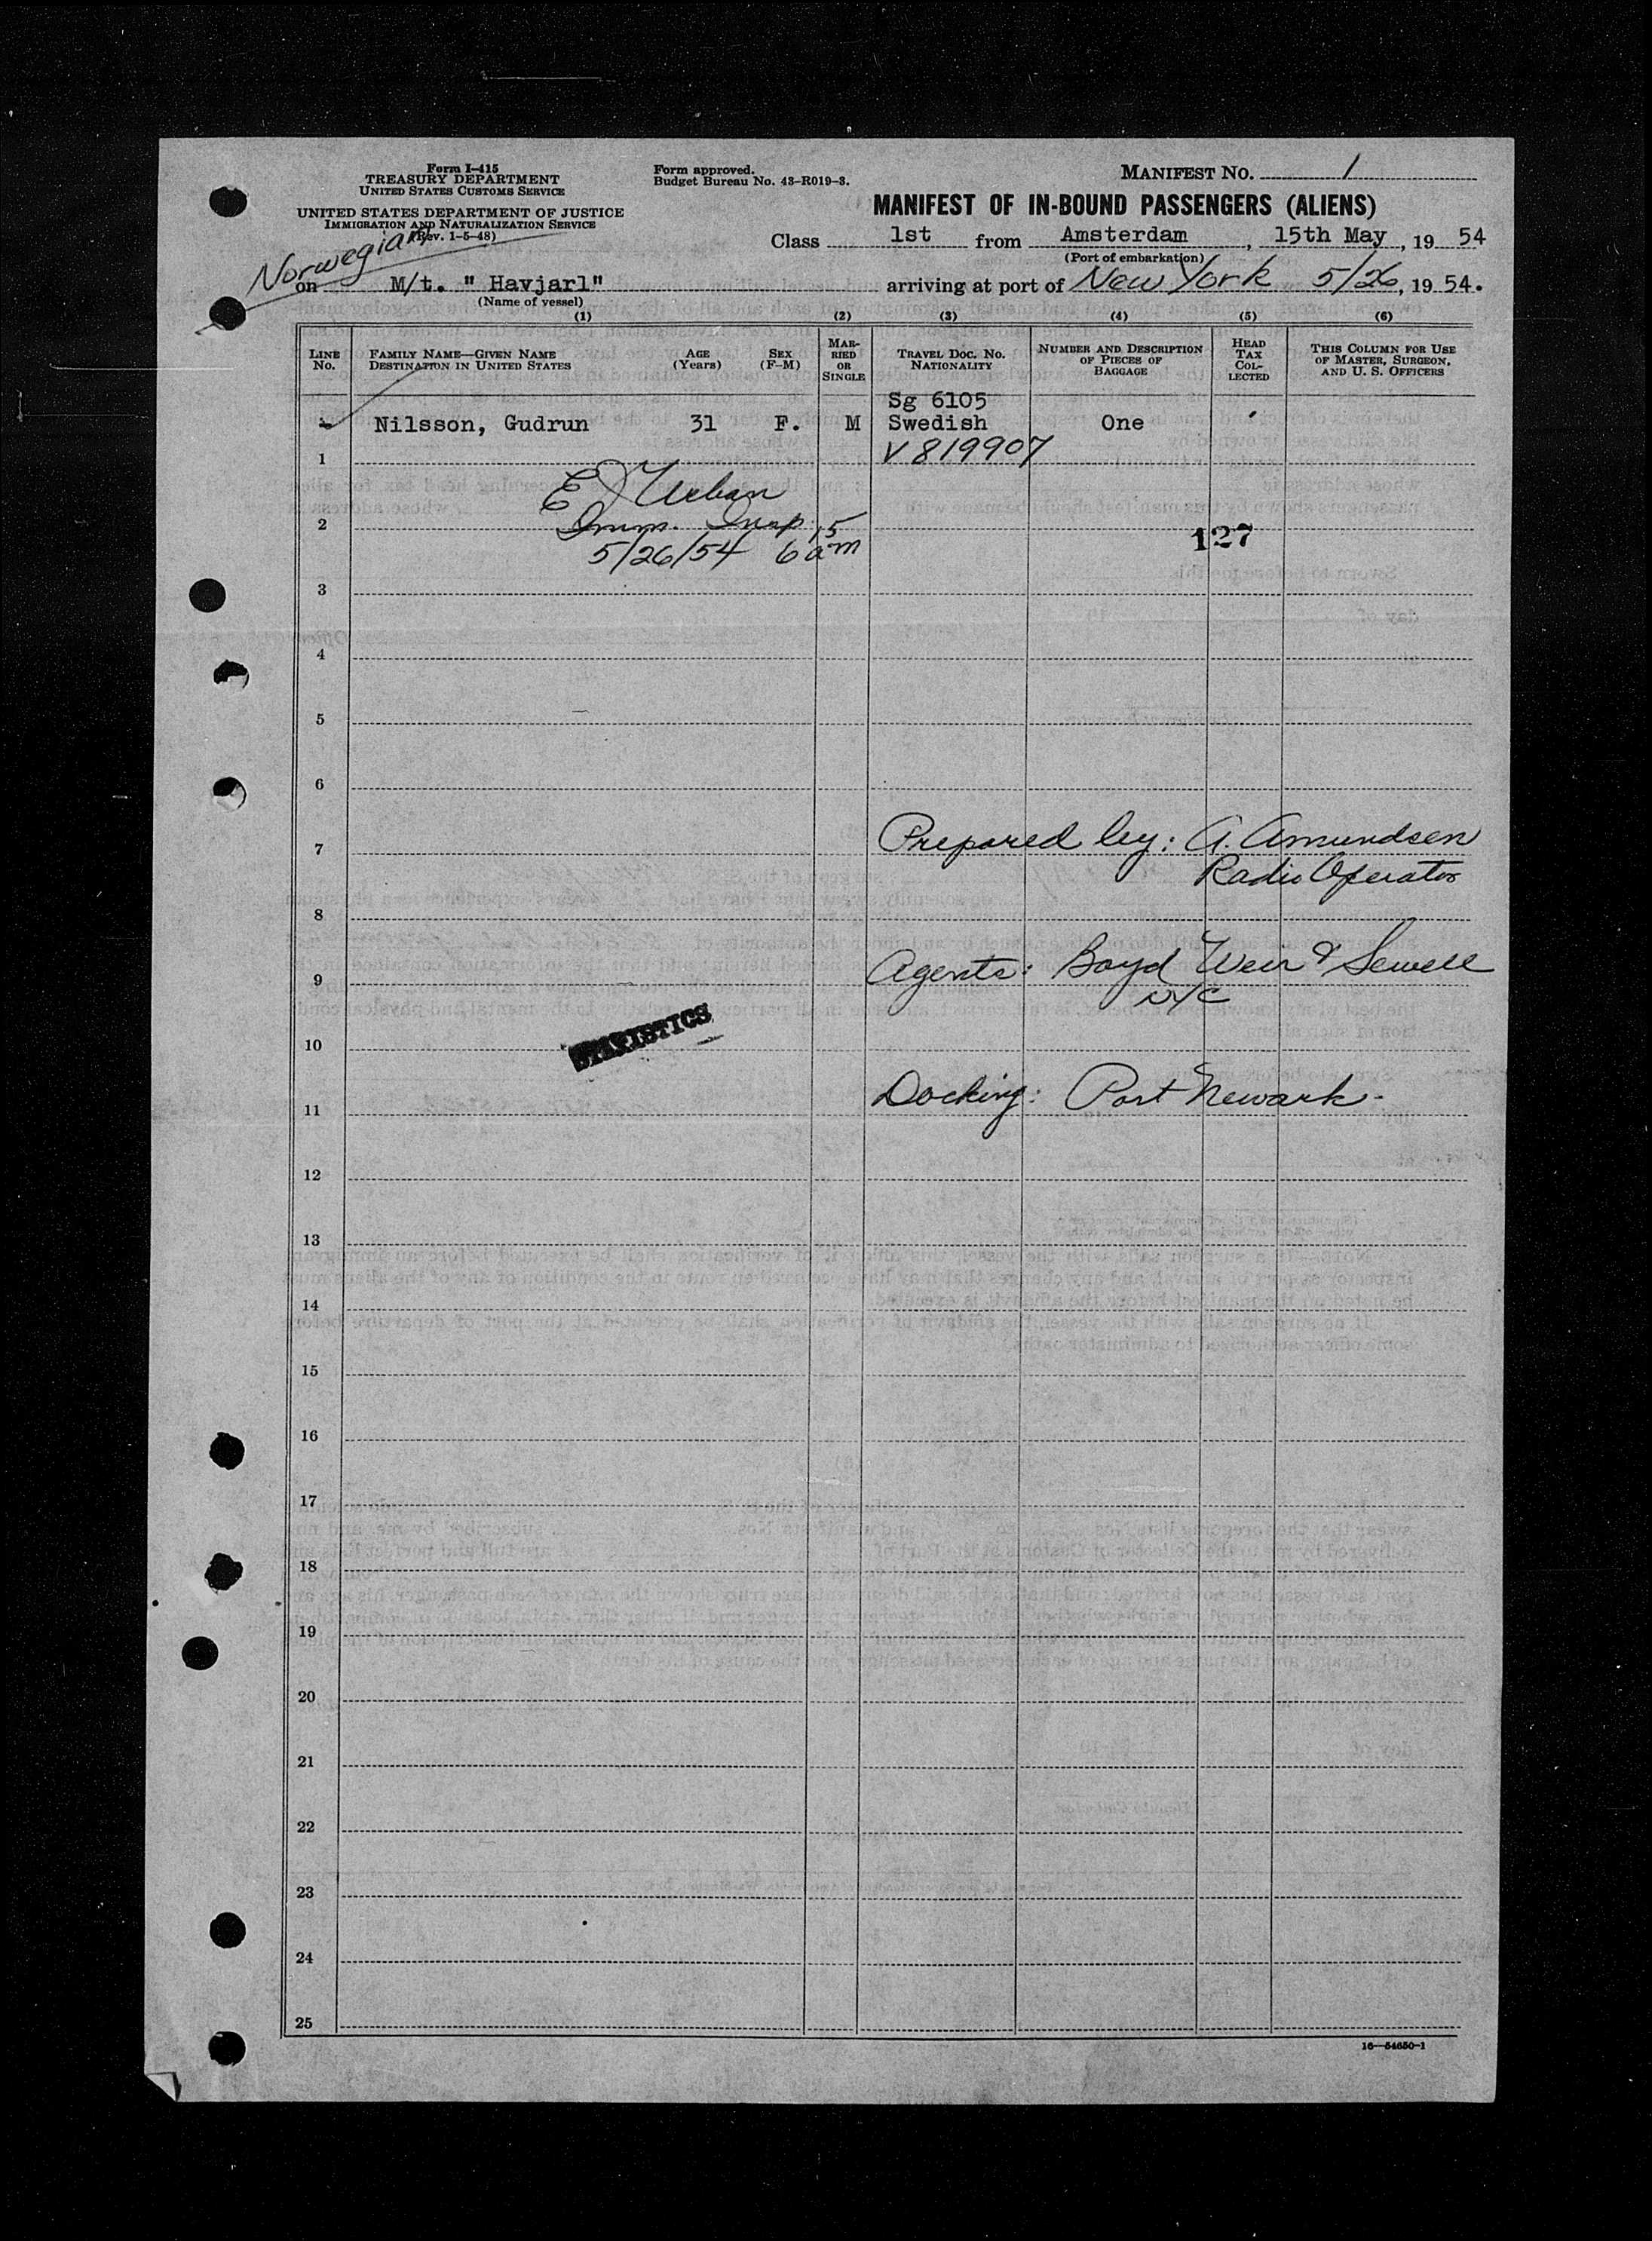 Form I-415
TREASURY DEPARTMENT
UNITED STATES CUSTOMS SERVICE
UNITED STATES DEPARTMENT OF JUSTICE
IMMIGRATION AND NATURALIZATION SERVICE
(Rev. 1-5-48)
Form approved.
Budget Bureau No. 43-R019-3.
MANIFEST NO. 1
MANIFEST OF IN-BOUND PASSENGERS (ALIENS)
Class 1st from Amsterdam, 15th May, 19 54
(Port of embarkation)
Norwegian
on M/t. " Havjarl" arriving at port of New York 5/26, 19 54.
(Name of vessel)
(1) (2) (3) (4) (5) (6)
LINE NO.
FAMILY NAME—GIVEN NAME
DESTINATION IN UNITED STATES
AGE
(Years)
SEX
(F-M)
MAR-
RIED
OR
SINGLE
TRAVEL DOC. NO.
NATIONALITY
NUMBER AND DESCRIPTION
OF PIECES OF
BAGGAGE
HEAD
TAX
COL-
LECTED
THIS COLUMN FOR USE
OF MASTER, SURGEON,
AND U. S. OFFICERS
Sg 6105
Nilsson, Gudrun 31 F. M Swedish One
V 819907
1
E J Urban
Imm. Insp
2
127
5/26/54 6 15 am
3
4
5
6
Prepared by: A. Amundsen
7
Radio Operator
8
Agents: Boyd Weir & Sewell
9
NYC
STATISTICS
10
Docking: Port Newark.
11
12
13
14
15
16
17
18
19
20
21
22
23
24
25
16—54650-1